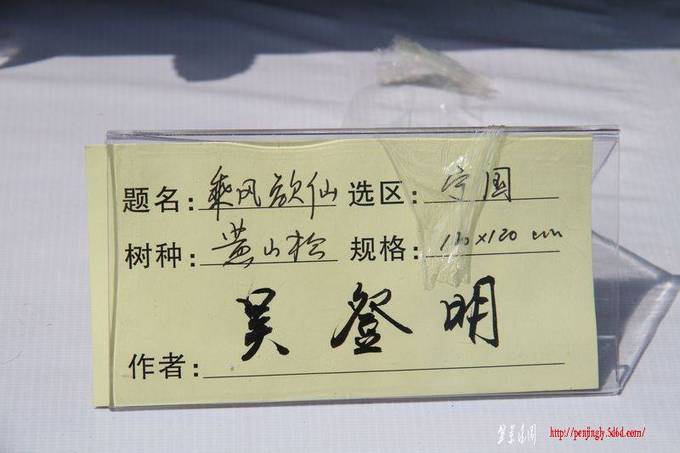 题名: 乘风欲仙 选区: 宁国
树种: 黄山松 规格: 110x120 cm
作者: 吴登明
http://penjingly.5d6d.com/